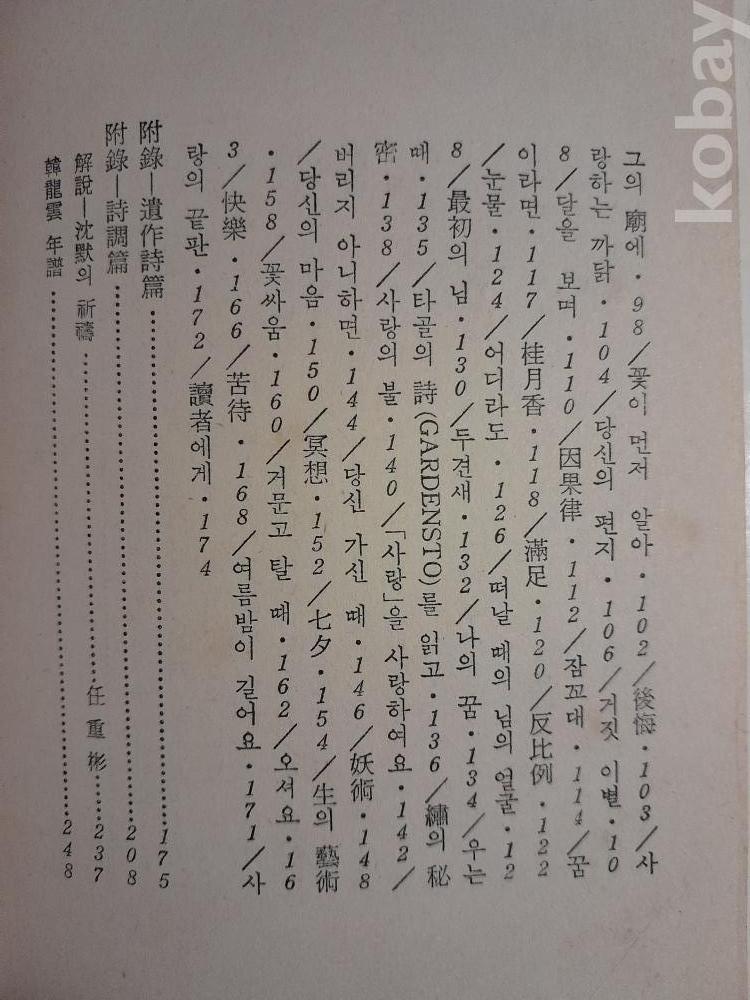 kobay
그의 廟에・98／꽃이 먼저 알아・102／後悔・103／사
랑하는 까닭・104／당신의 편지・106／거짓 이별・10
8／달을 보며・110／因果律・112／잠꼬대・114／꿈
이라면・117／桂月香・118／滿足・120／反比例・122
／눈물・124／어디라도・126／떠날 때의 님의 얼굴・12
8／最初의 님・130／두견새・132／나의 꿈・134／우는
때・135／타골의 詩(GARDENSTO)를 읽고・136／繡의 秘
密・138／사랑의 불・140／「사랑」을 사랑하여요・142／
버리지 아니하면・144／당신 가신 때・146／妖術・148
／당신의 마음・150／冥想・152／七夕・154／生의 藝術
・158／꽃싸움・160／거문고 탈 때・162／오셔요・16
3／快樂・166／苦待・168／여름밤이 길어요・171／사
랑의 끝판・172／讀者에게・174
附錄―遺作詩篇……………………175
附錄―詩調篇……………………208
解說―沈默의 祈禱……………………任重彬……237
韓龍雲 年譜……………………248